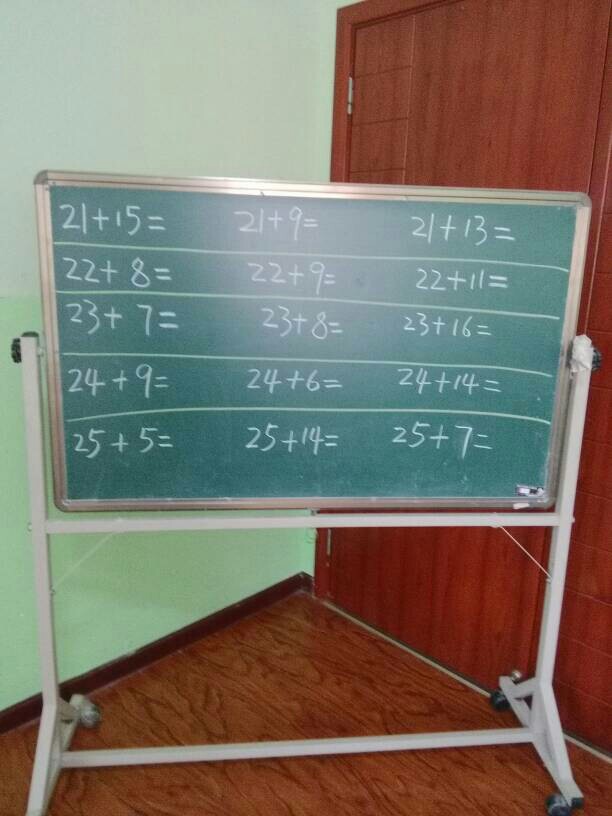 21+15= 21+9= 21+13=
22+8= 22+9= 22+11=
23+7= 23+8= 23+16=
24+9= 24+6= 24+14=
25+5= 25+14= 25+7=